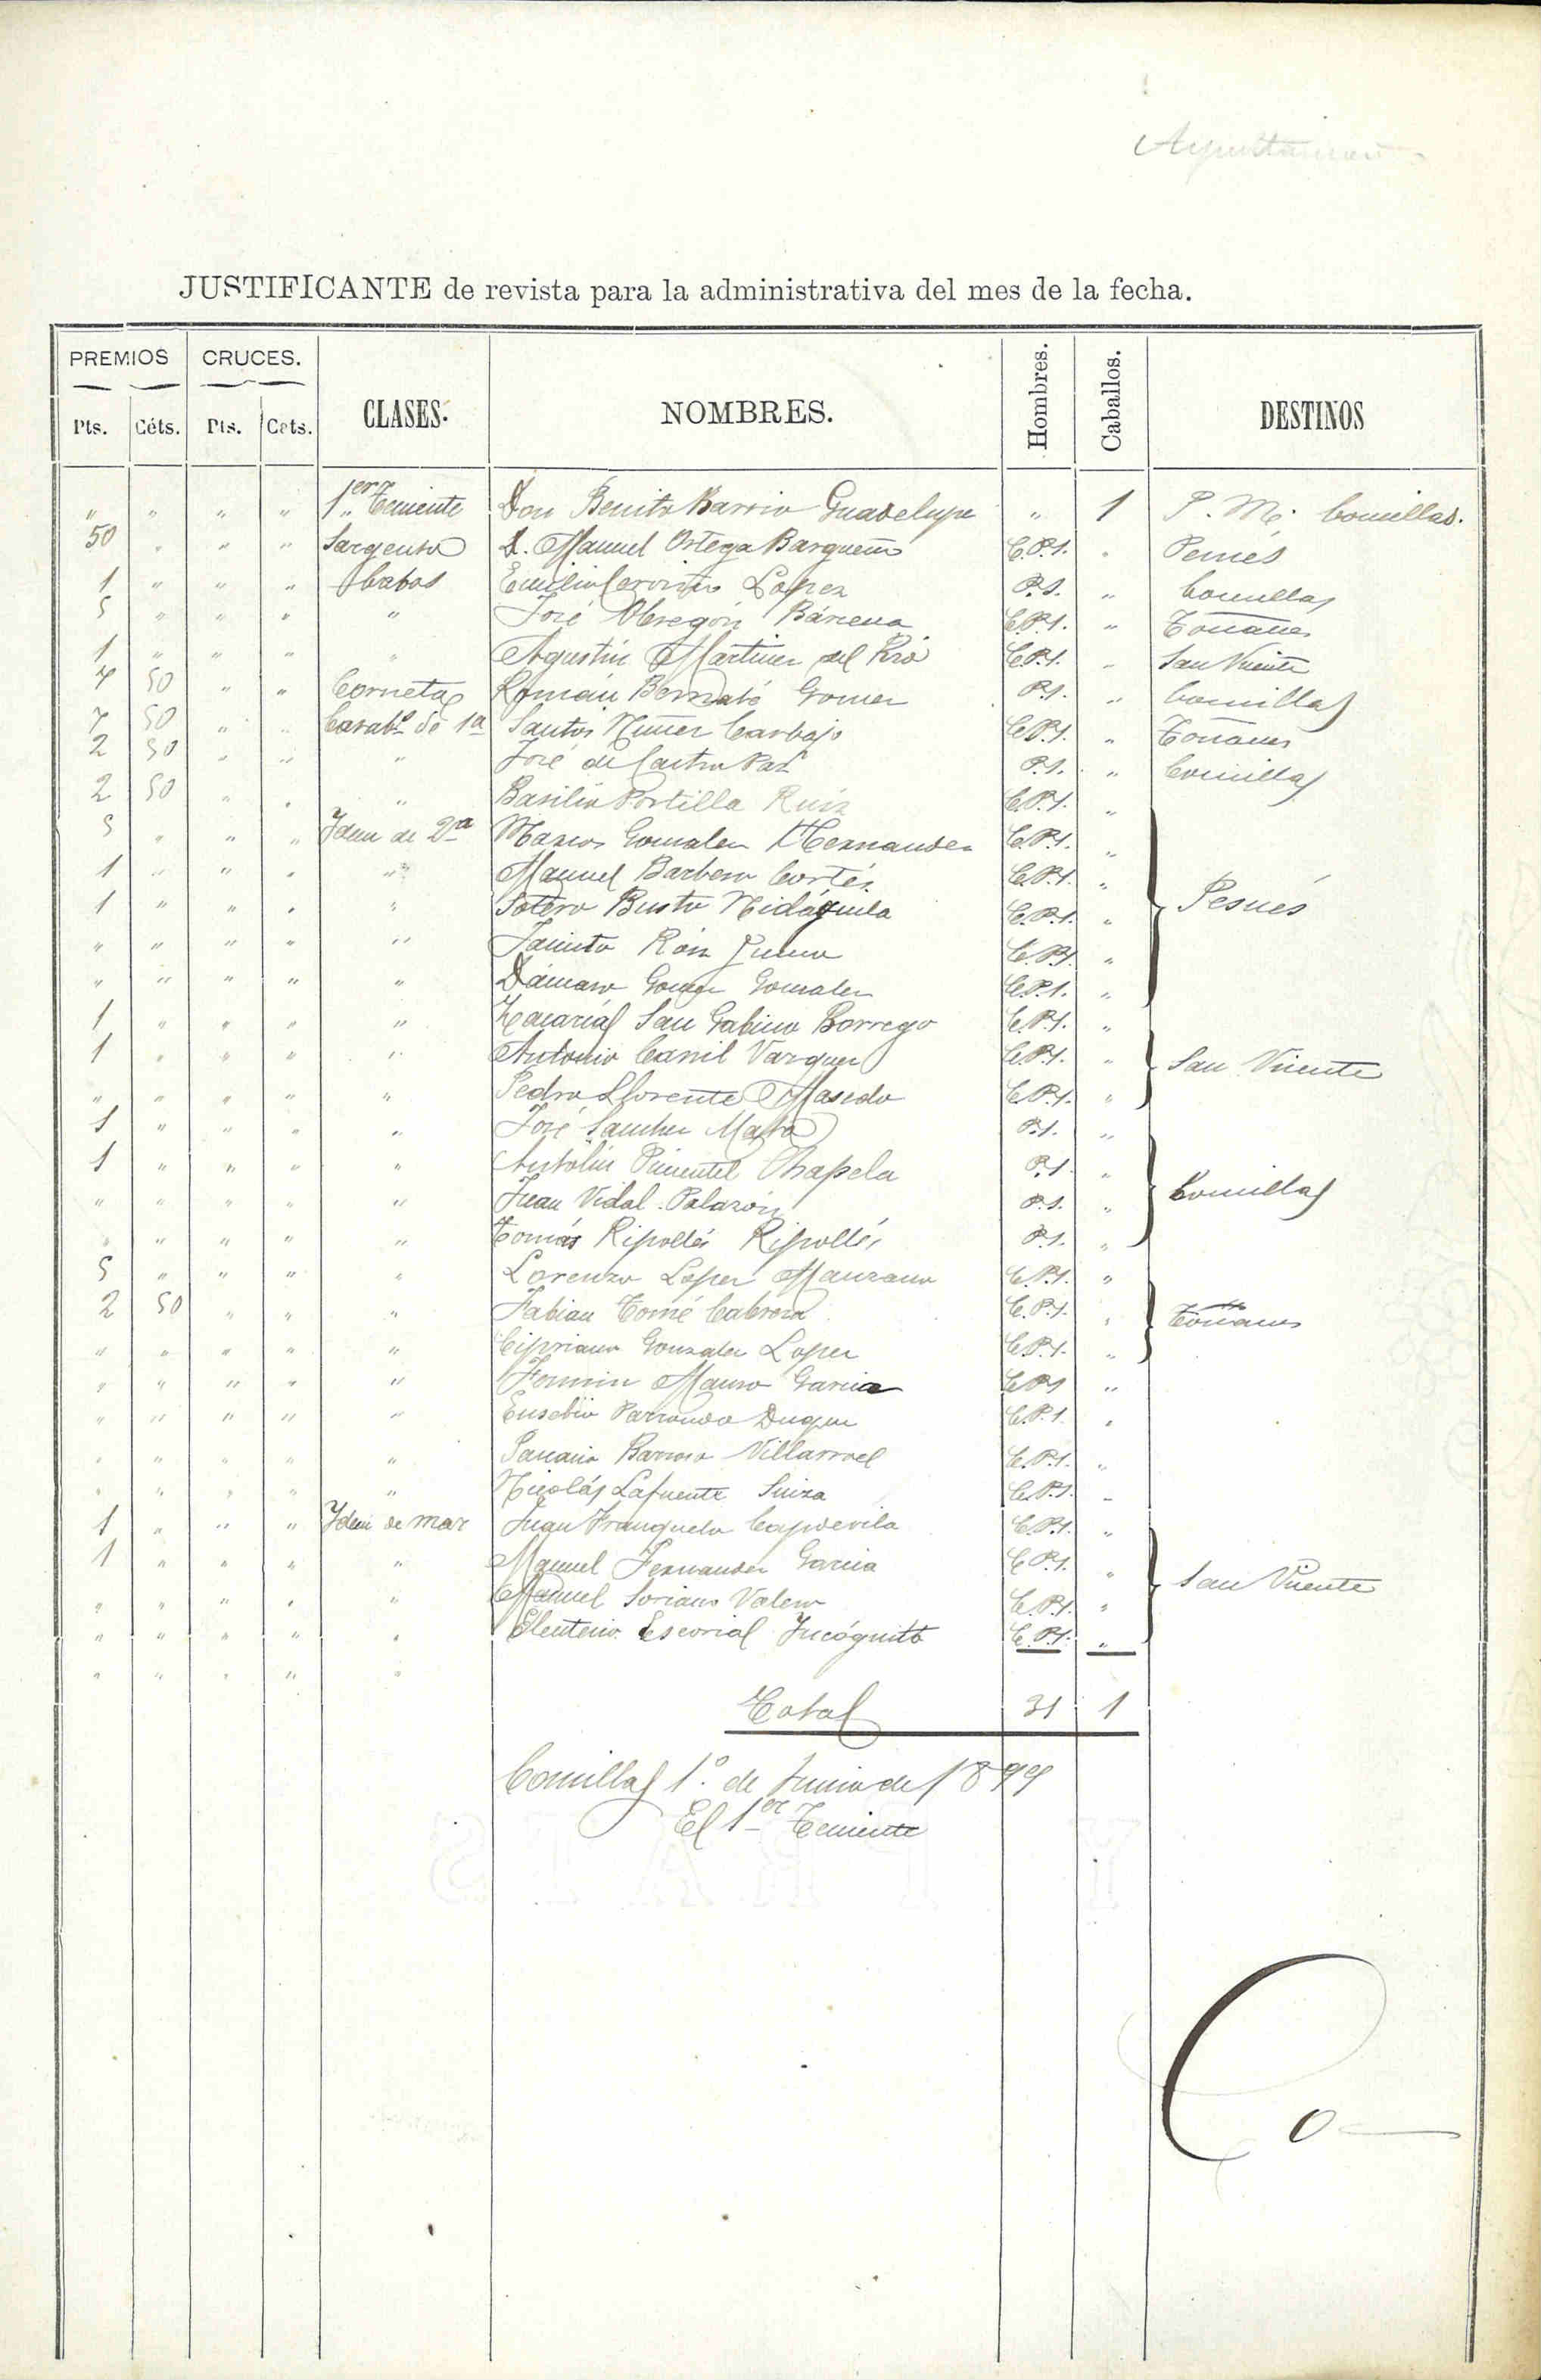 JUSTIFICANTE de revista para la administrativa del mes de la fecha.
PREMIOS CRUCES. CLASES. NOMBRES. Hombres. Caballos. DESTINOS
Pts. Céts. Pts. Cets.
" " " " 1er Teniente Don Benito Barrio Guadelupe " 1 P. M. Comillas.
50 " " " Sargento D. Manuel Ortega C.P.1. " Pesués
1 " " " Cabos Emilio Lopez P.1. " Comillas
5 " " " " José Obregón Bárcena C.P.1. " Toñanes
1 " " " " Agustín Martinez del Rio C.P.1. " San Vicente
7 50 " " Cornetas Román Bernabé Gomez P.1. " Comillas
7 50 " " Carabo de 1a Santos Nuñez Carbajo C.P.1. " Toñanes
2 50 " " " José de Castro Paz P.1. " Comillas
2 50 " " " Basilio Portilla Ruiz C.P.1. "
5 " " " Idem de 2a Marcos Gonzalez Hernandez C.P.1. "
1 " " " " Manuel Barbero Cortés C.P.1. "
1 " " " " Sotero Busto C.P.1. " Pesués
" " " " " Jacinto C.P.1. "
" " " " " Dámaso Gomez Gonzalez C.P.1. "
1 " " " " Zacarías San Gabino Borrego C.P.1. "
1 " " " " Antonio Canil Vazquez C.P.1. " San Vicente
" " " " " Pedro Llorente C.P.1. "
1 " " " " José Sanchez Mata P.1. "
1 " " " " Antolín Pimentel Chapela P.1. "
" " " " " Juan Vidal Palazón P.1. " Comillas
" " " " " Tomás Ripollés Ripollés P.1. "
5 " " " " Lorenzo Lopez Manzano C.P.1. "
2 50 " " " Fabian Tomé Cabrera C.P.1. " Toñanes
" " " " " Cipriano Gonzalez Lopez C.P.1. "
" " " " " Fermin Mauro Garcia C.P.1 "
" " " " " Eusebio Parrondo Duque C.P.1. "
" " " " " Barroso Villarroel C.P.1. "
" " " " " Nicolás Lafuente Suiza C.P.1. "
1 " " " Idem de mar Juan Franquelo Capdevila C.P.1. "
1 " " " " Manuel Fernandez Garcia C.P.1. "
" " " " " Manuel Soriano Valero C.P.1. " San Vicente
" " " " " Eleuterio Escorial Incógnito C.P.1. "
" " " " "
Total 31 1
Comillas 1º. de Junio de 1899
El 1er Teniente